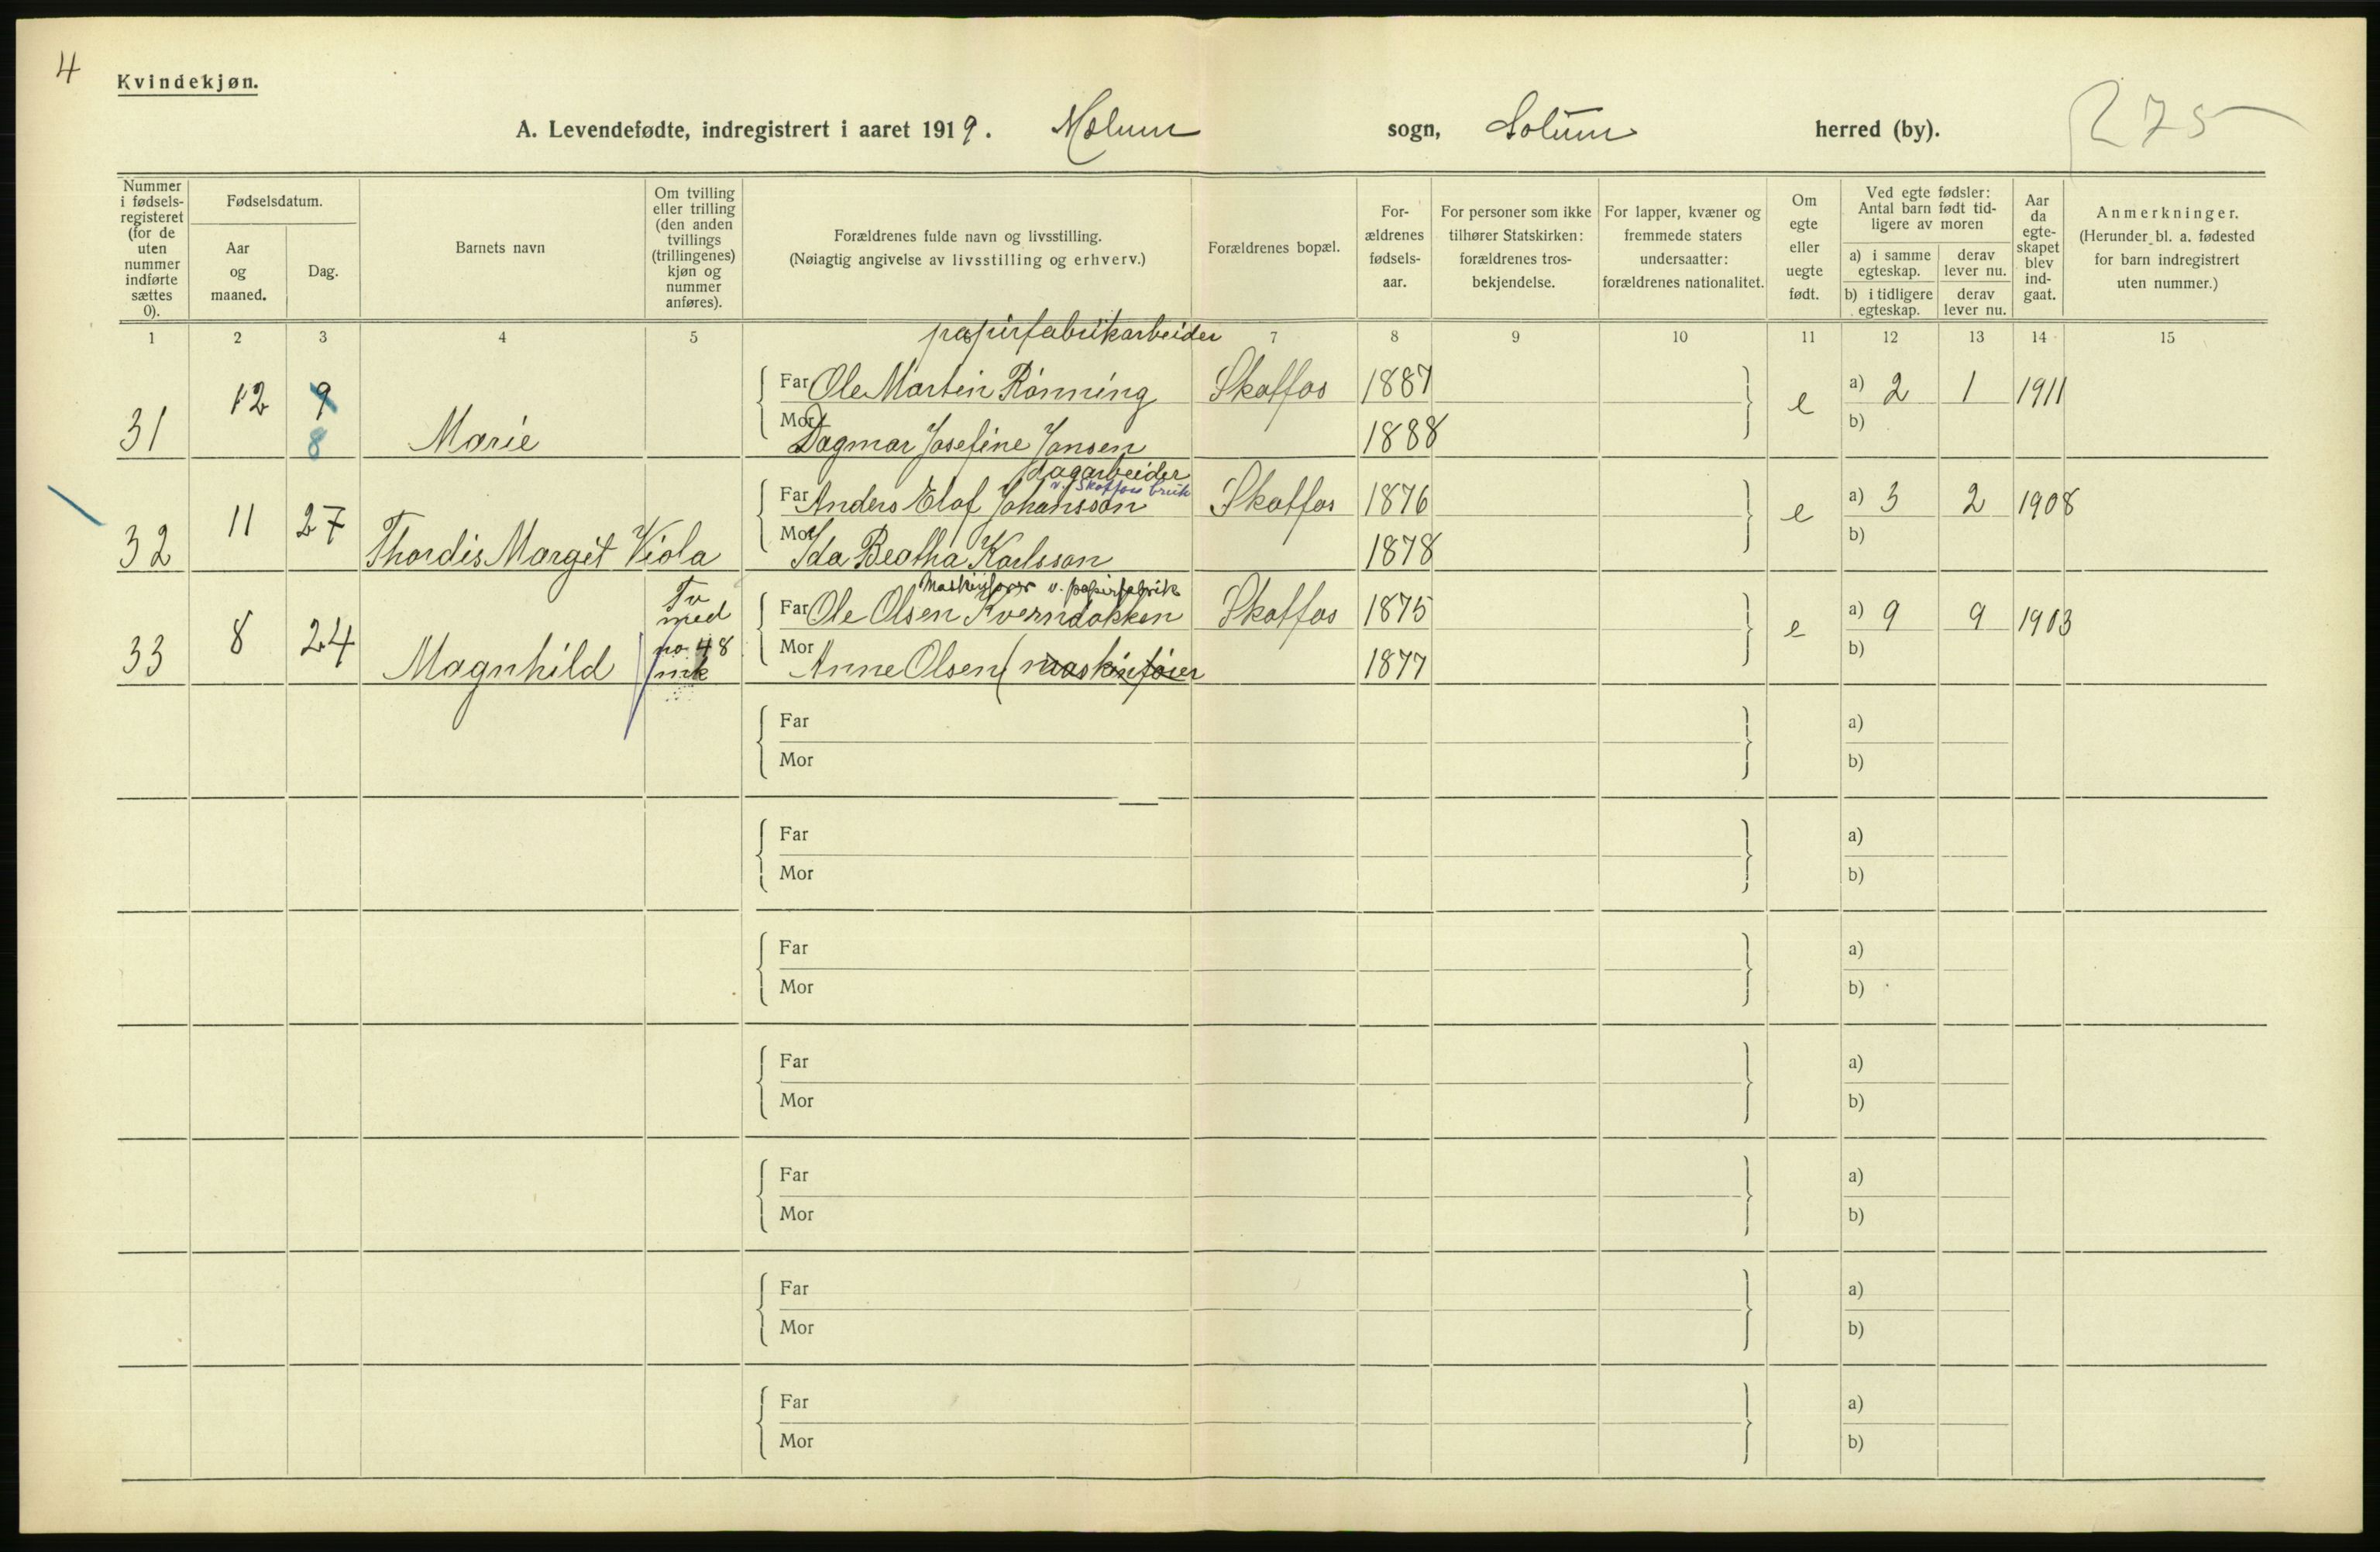 4
Kvindekjøn.
A. Levendefødte, indregistrert i aaret 1919. Mælum sogn, Solum herred (by).
275
Nummer i fødsels-registeret (for de uten nummer indførte sættes 0).
Fødselsdatum.
Aar og maaned.
Dag.
Barnets navn
Om tvilling eller trilling (den anden tvillings (trillingenes) kjøn og nummer anføres).
Forældrenes fulde navn og livsstilling.
(Nøiagtig angivelse av livsstilling og erhverv.)
Forældrenes bopæl.
For-ældrenes fødsels-aar.
For personer som ikke tilhører Statskirken: forældrenes tros-bekjendelse.
For lapper, kvæner og fremmede staters undersaatter: forældrenes nationalitet.
Om egte eller uegte født.
Ved egte fødsler: Antal barn født tid-ligere av moren
a) i samme egteskap.
derav lever nu.
b) i tidligere egteskap.
derav lever nu.
Aar da egte-skapet blev ind-gaat.
Anmerkninger.
(Herunder bl. a. fødested for barn indregistrert uten nummer.)
1 2 3 4 5 6 7 8 9 10 11 12 13 14 15
papirfabrikarbeider
31 12 9 8 Marie
Far Ole Martin Rönning Skotfos 1887 e a) 2 1 1911
Mor Dagmar Josefine Jansen 1888 b)
dagarbeider
v. Skotfos bruk
32 11 27 Thordis Margit Viola
Far Anders Elof Johansson Skotfos 1876 e a) 3 2 1908
Mor Ida Beatha Karlsson 1878 b)
Maskinfører v. papirfabrik
33 8 24 Magnhild
Tv med no 48 mk
Far Ole Olsen Kverndokken Skotfos 1875 e a) 9 9 1903
Mor Anne Olsen (maskinföier 1877 b)
Far a)
Mor b)
Far a)
Mor b)
Far a)
Mor b)
Far a)
Mor b)
Far a)
Mor b)
Far a)
Mor b)
Far a)
Mor b)